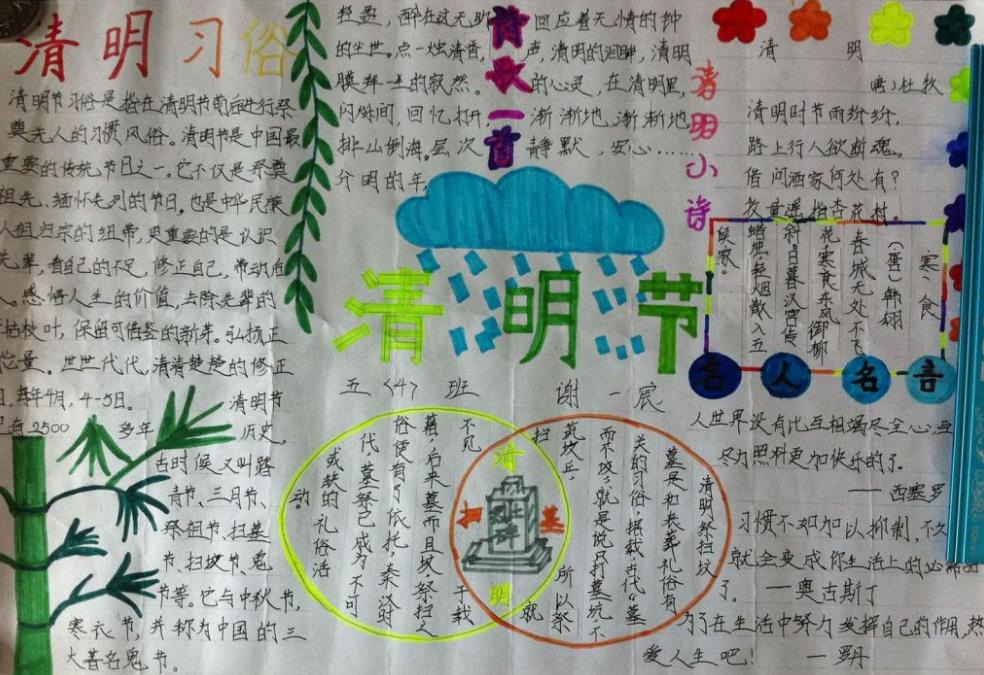 清明习俗
清明节习俗是指在清明节前后进行祭
奠先人的习惯风俗。清明节是中国最
重要的传统节日之一。它不仅是祭奠
祖先、缅怀先烈的节日,也是中华民族
人祖归宗的纽带,更重要的是认识
先辈,看自己的不足,修正自己,带动后
人。感悟人生的价值,去除先辈的
枯枝叶,保留可借鉴的新芽。弘扬正
能量。世世代代,清清楚楚的修正
每年4月,4-5日。清明节
已有2500多年历史,
古时候又叫踏
青节、三月节、
祭祖节、扫墓
节、扫坟节、鬼
节等。它与中秋节,
寒衣节,并称为中国的三
大著名鬼节。
诗歌一首
轻盈,醉在这无助
的尘世。点一烛清香,
膜拜一生的寂然。
闪烁间,回忆打开,
排山倒海。层次
分明的年,
回应着无情的钟
声,清明的泪眸,清明
的心灵,在清明里,
渐渐地,渐渐地,
静默,安心……
清明小诗
清明
(唐)杜牧
清明时节雨纷纷,
路上行人欲断魂。
借问酒家何处有?
牧童遥指杏花村。
清明节
五〈4〉班 谢一宸
寒食
(唐)韩翃
春城无处不飞
花,寒食东风御柳
斜。日暮汉宫传
蜡烛,轻烟散入五
侯家。
名人名言
人世界没有比互相竭尽全心,互
尽力照料更加快乐的了。
——西塞罗
习惯不如加以抑制,不久
就会变成你生活上的必需品
了。 —奥古斯丁
为了在生活中努力发挥自己的作用,热
爱人生吧! —罗丹
清明祭扫坟
墓是和丧葬礼俗有
关的习俗,据载,古代“墓
而不坟”,就是说只打墓坑,不
筑坟丘,所以祭
扫就
不见于载
籍,后来墓而且坟,祭扫之
俗便有了依托。秦汉时
代,墓祭已成为不可
或缺的礼俗活
动。
清明
扫墓